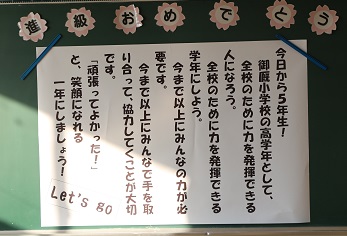 進級おめでとう
今日から5年生!
御厩小学校の高学年として、
全校のために力を発揮できる
人になろう。
全校のために力を発揮できる
学年にしよう。
今まで以上にみんなの力が必
要です。
今まで以上にみんなで手を取
り合って、協力してくことが大切
です。
「頑張ってよかった!」
と、笑顔になれる
一年にしましょう!
Let's go